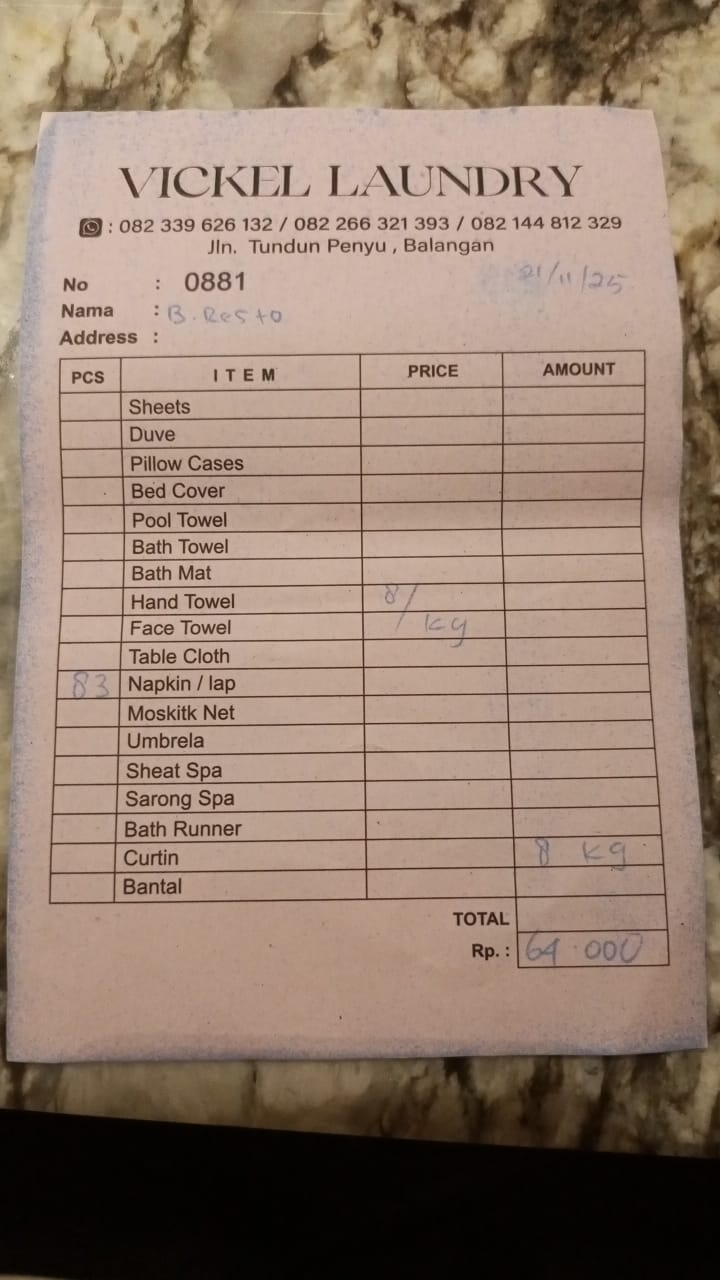 VICKEL LAUNDRY
: 082 339 626 132 / 082 266 321 393 / 082 144 812 329
Jln. Tundun Penyu , Balangan
No : 0881 21/11/25
Nama : B. Resto
Address :
PCS ITEM PRICE AMOUNT
Sheets
Duve
Pillow Cases
Bed Cover
Pool Towel
Bath Towel
Bath Mat
Hand Towel 8/
Face Towel kg
Table Cloth
83 Napkin / lap
Moskitk Net
Umbrela
Sheat Spa
Sarong Spa
Bath Runner
Curtin 8 kg
Bantal
TOTAL
Rp. : 64.000